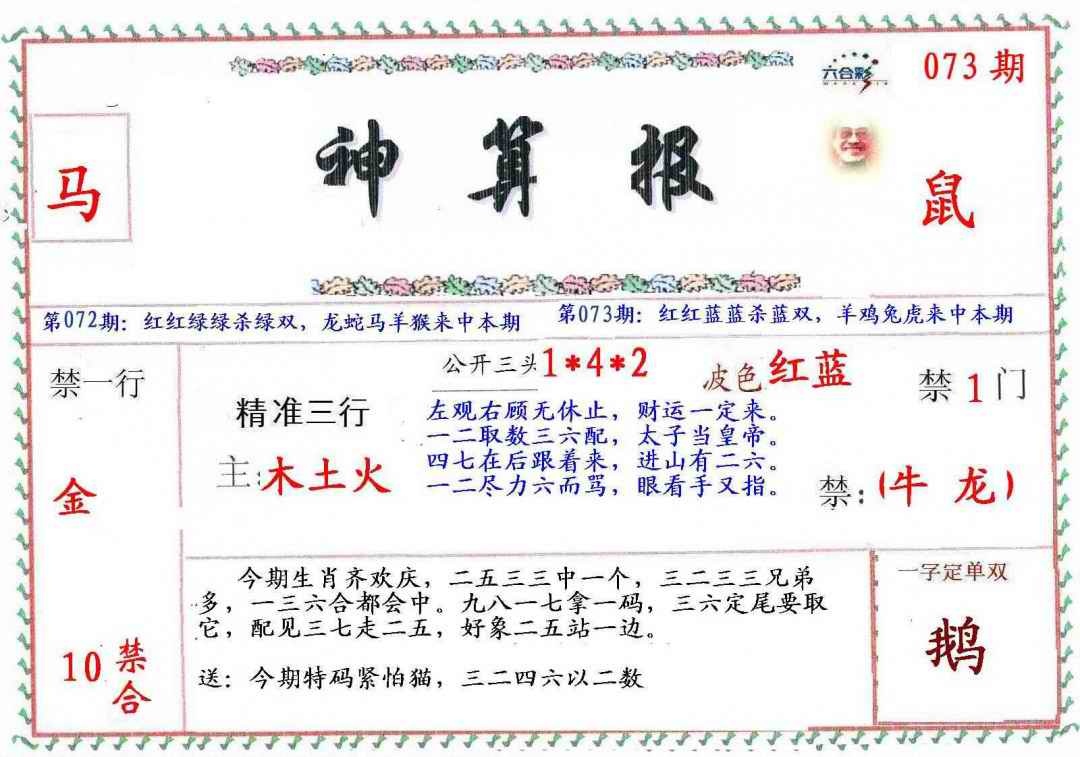 六合彩
073 期
马
神算报
鼠
第072期：红红绿绿杀绿双，龙蛇马羊猴来中本期
第073期：红红蓝蓝杀蓝双，羊鸡兔虎来中本期
禁一行
金
10 禁合
精准三行
主:木土火
公开三头1*4*2
波色红蓝
左观右顾无休止，财运一定来。
一二取数三六配，太子当皇帝。
四七在后跟着来，进山有二六。
一二尽力六而骂，眼看手又指。
禁1门
禁:(牛 龙)
今期生肖齐欢庆，二五三三中一个，三二三三兄弟
多，一三六合都会中。九八一七拿一码，三六定尾要取
它，配见三七走二五，好象二五站一边。
送：今期特码紧怕猫，三二四六以二数
一字定单双
鹅